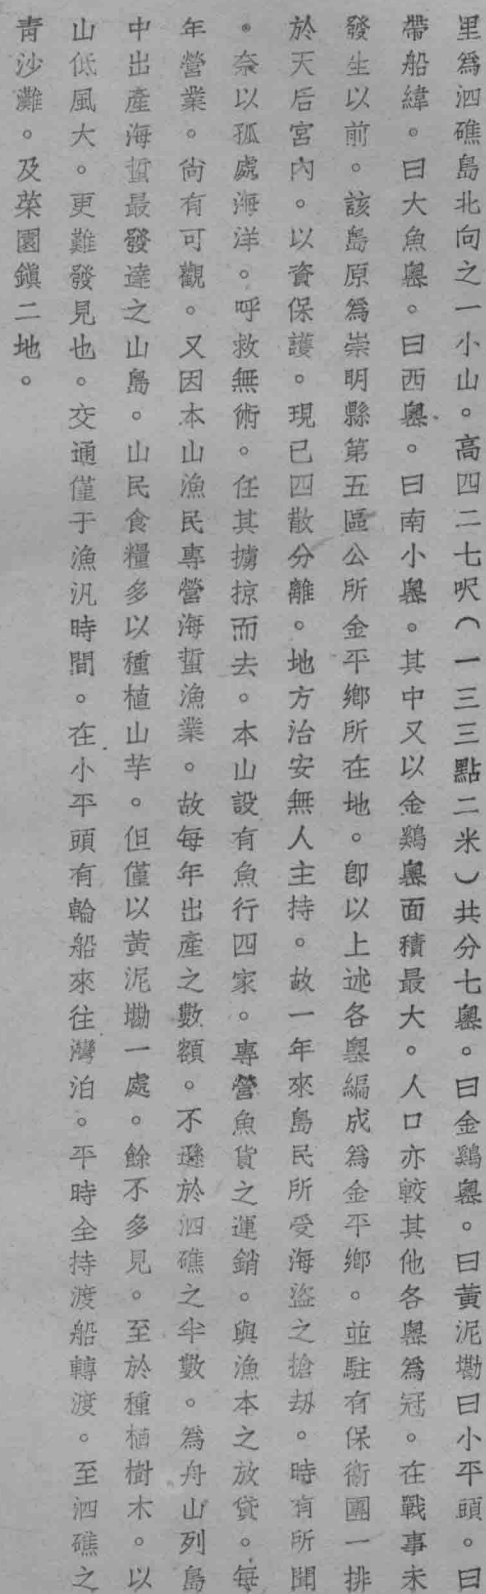 里爲泗礁島北向之一小山。高四二七呎（一三三點二米）共分七嶴。曰金鷄嶴。曰黃泥墈曰小平頭。曰
帶船緯。曰大魚嶴。曰西嶴。曰南小嶴。其中又以金鷄嶴面積最大。人口亦較其他各嶴爲冠。在戰事未
發生以前。該島原爲崇明縣第五區公所金平鄉所在地。卽以上述各嶴編成爲金平鄉。並駐有保衛團一排
於天后宮內。以資保護。現已四散分離。地方治安無人主持。故一年來島民所受海盜之搶刼。時有所聞
。奈以孤處海洋。呼救無術。任其擄掠而去。本山設有魚行四家。專營魚貨之運銷。與漁本之放貸。每
年營業。尙有可觀。又因本山漁民專營海蜇漁業。故每年出產之數額。不遜於泗礁之半數。爲舟山列島
中出產海蜇最發達之山島。山民食糧多以種植山芋。但僅以黃泥墈一處。餘不多見。至於種植樹木。以
山低風大。更難發見也。交通僅于漁汛時間。在小平頭有輪船來往灣泊。平時全持渡船轉渡。至泗礁之
靑沙灘。及菜園鎭二地。